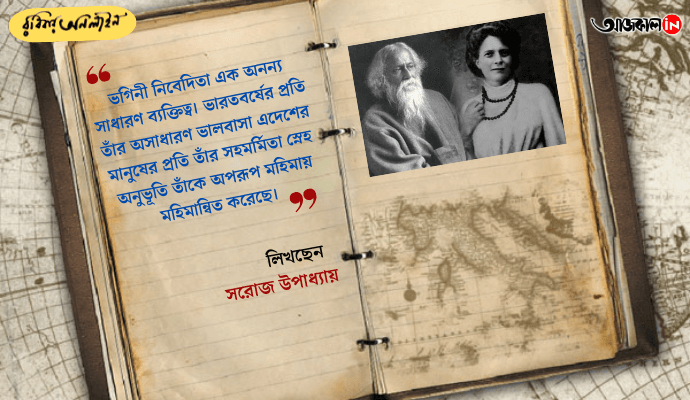 রবিবার অনলাইন
আজকাল in
“ ভগিনী নিবেদিতা এক অনন্য
সাধারণ ব্যক্তিত্ব। ভারতবর্ষের প্রতি
তাঁর অসাধারণ ভালবাসা এদেশের
মানুষের প্রতি তাঁর সহমর্মিতা স্নেহ
অনুভূতি তাঁকে অপরূপ মহিমায়
মহিমান্বিত করেছে। ”
লিখছেন
সরোজ উপাধ্যায়